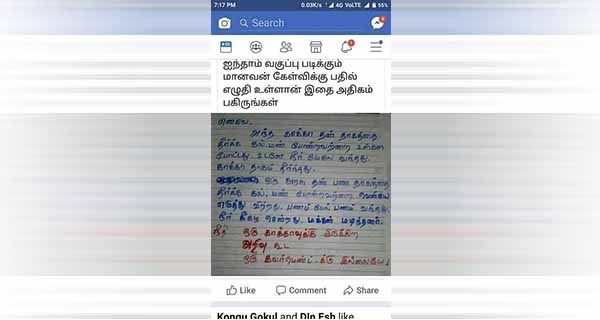 7:17 PM 0.03K/s 4G VoLTE 55%
Search
ஐந்தாம் வகுப்பு படிக்கும்
மானவன் கேள்விக்கு பதில்
எழுதி உள்ளான் இதை அதிகம்
பகிருங்கள்
அந்த காக்கா தன் தாகத்தை
தீர்க்க கல். மண் போன்றவற்றை உள்ளே
போட்டது. உடனே நீர் மேலே வந்தது.
காக்கா தாகம் தீர்ந்தது.
ஒரு அரசு தன் பண தாகத்தை
தீர்க்க கல். மண் போன்றவற்றை வெளியே
எடுத்து விற்றது. பணம் மேல் பணம் வந்தது.
நீர் கீழே சென்றது. மக்கள் மடிந்தனர்.
நீதி ஒரு காக்காவுக்கு இருக்கிற
அறிவு கூட
ஒரு கவர்மெண்ட்-க்கு இல்லையே.
Like Comment Share
Kongu Gokul and DIn Esh like